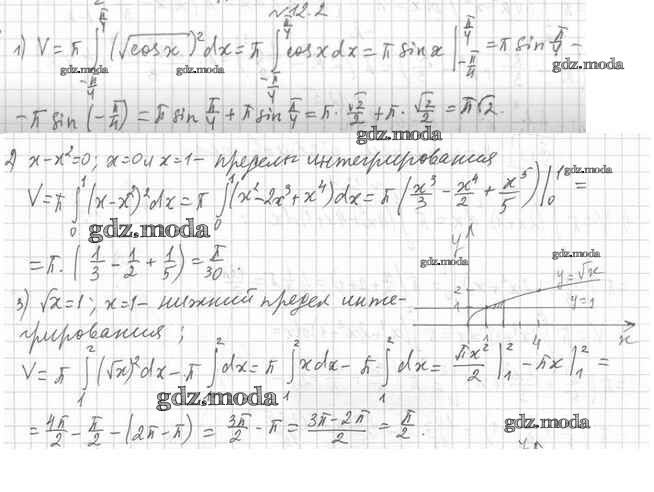 №12.2
1) V = π ∫_{-π/4}^{π/4} (√cos x)² dx = π ∫_{-π/4}^{π/4} cos x dx = π sin x |_{-π/4}^{π/4} = π sin π/4 -
- π sin (-π/4) = π sin π/4 + π sin π/4 = π · √2/2 + π · √2/2 = π√2.
2) x - x² = 0; x = 0 и x = 1 - пределы интегрирования
V = π ∫_0^1 (x - x²)² dx = π ∫_0^1 (x² - 2x³ + x⁴) dx = π (x³/3 - x⁴/2 + x⁵/5) |_0^1 =
= π · (1/3 - 1/2 + 1/5) = π/30.
3) √x = 1; x = 1 - нижний предел инте-
грирования;
y
2
1
1
4
x
y = √x
y = 1
V = π ∫_1^2 (√x)² dx - π ∫_1^2 dx = π ∫_1^2 x dx - π · ∫_1^2 dx = πx²/2 |_1^2 - πx |_1^2 =
= 4π/2 - π/2 - (2π - π) = 3π/2 - π = (3π - 2π)/2 = π/2.
gdz.moda
gdz.moda
gdz.moda
gdz.moda
gdz.moda
gdz.moda
gdz.moda
gdz.moda
gdz.moda
gdz.moda
gdz.moda